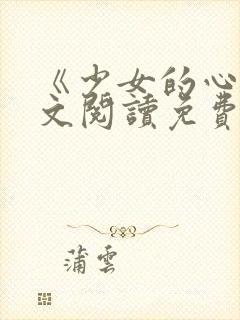 《少女的心
文閱讀免費
蒲雲